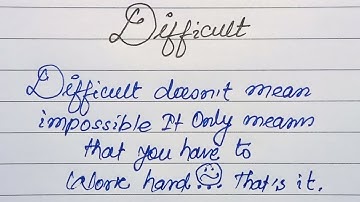 Difficult
Difficult doesn't mean
impossible It Only means
that you have to
Work hard... That's it.